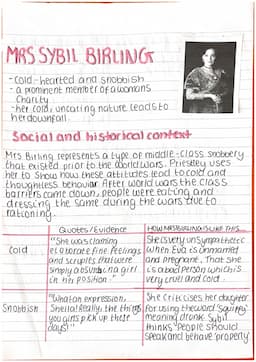 MRS SYBIL BIRLING
-cold-hearted and snobbish
-a prominent member of a womans
Charity
-her cold, uncaring nature leads to
her downfall.
Social and historical context
Mrs Birling represents a type of middle-class snobbery
that existed prior to the world wars. Priestley uses
her to show how these attitudes lead to cold and
thoughtless behaviour. After world wars the class
barriers came down, people were eating and
dressing the same during the wars due to
rationing.
Quotes/Evidence
HOW MRS BIRLING IS LIKE THIS...
Cold
"She was claiming
elaborate fine feelings
and scruples that were
simply absurd in a girl
in his position."
She is very unsympathetic
when Eva is unmarried
and pregnant. That she
is a bad person which is
very cruel and cold.
Snobbish
"What an expression,
Sheila! Really the things
you girls pick up these
days!"
She criticises her daughter
for using the word 'squiffy'
meaning drunk. Sybil
thinks 'People should
speak and behave 'properly'